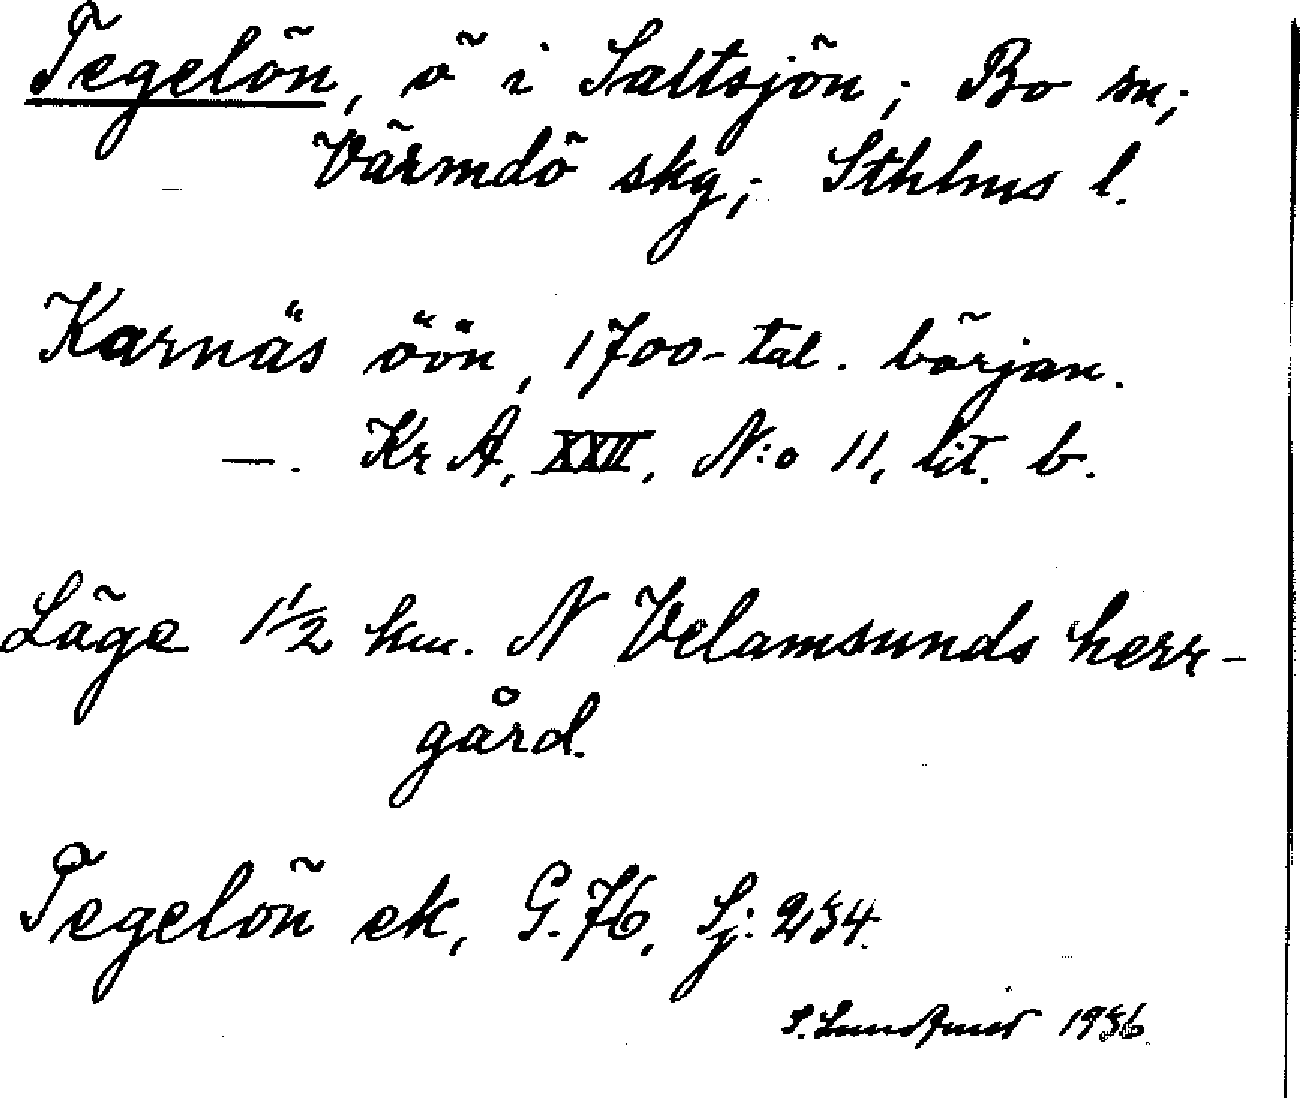 Tegelön, ö i Saltsjön; Bo sn;
Värmdö skg; Sthlms l.
Karnäs öön, 1700-tal. början.
—. Kr A, XXII, N:o 11, lit. b.
Läge 1½ km. N Velamsunds herr-
gård.
Tegelön ek, G. 76, Sj: 234.
S. 1936